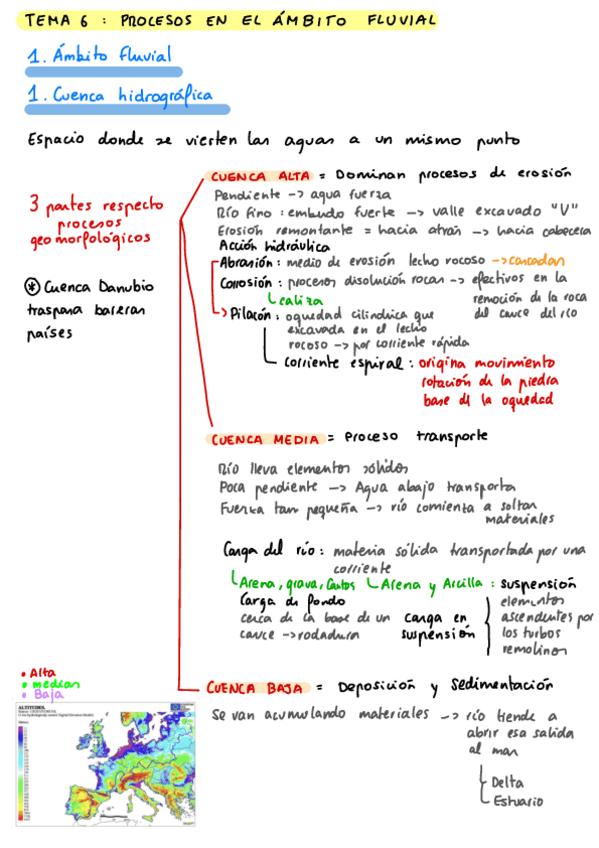 TEMA 6 : PROCESOS EN EL ÁMBITO FLUVIAL
1. Ámbito fluvial
1. Cuenca hidrográfica
Espacio donde se vierten las aguas a un mismo punto
3 partes respecto
procesos
geomorfológicos
* Cuenca Danubio
traspasa barreras
países
CUENCA ALTA = Dominan procesos de erosión
Pendiente -> agua fuerza
Río fino : embudo fuerte -> valle excavado "V"
Erosión remontante = hacia atrás -> hacia cabecera
Acción hidráulica
Abrasión : medio de erosión lecho rocoso -> cascadas
Corrosión : procesos disolución rocas -> efectivos en la
remoción de la roca
del cauce del río
caliza
Pilacón : oquedad cilíndrica que
excavada en el lecho
rocoso -> por corriente rápida
Corriente espiral : origina movimiento
rotación de la piedra
base de la oquedad
CUENCA MEDIA = Proceso transporte
Río lleva elementos sólidos
Poca pendiente -> Agua abajo transporta
Fuerza tan pequeña -> río comienza a soltar
materiales
Carga del río : materia sólida transportada por una
corriente
Arena, grava, Cantos
Carga de fondo
cerca de la base de un
cauce -> rodadura
Arena y Arcilla : suspensión
carga en
suspensión
elementos
ascendentes por
los turbos
remolinos
CUENCA BAJA = Deposición y Sedimentación
Se van acumulando materiales -> río tiende a
abrir esa salida
al mar
Delta
Estuario
• Alta
• median
• Baja
ALTITUDES